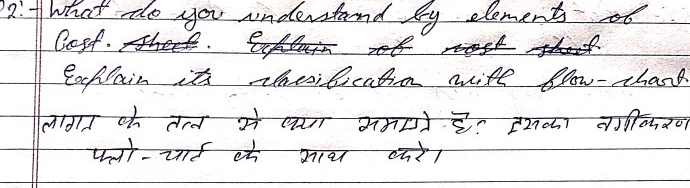 2:- What do you understand by elements of
Cost. sheet. Explain of cost sheet.
Explain its classification with flow-chart
लागत के तत्व से क्या समझते है? इसका वर्गीकरण
फ्लो-चार्ट के साथ करे।